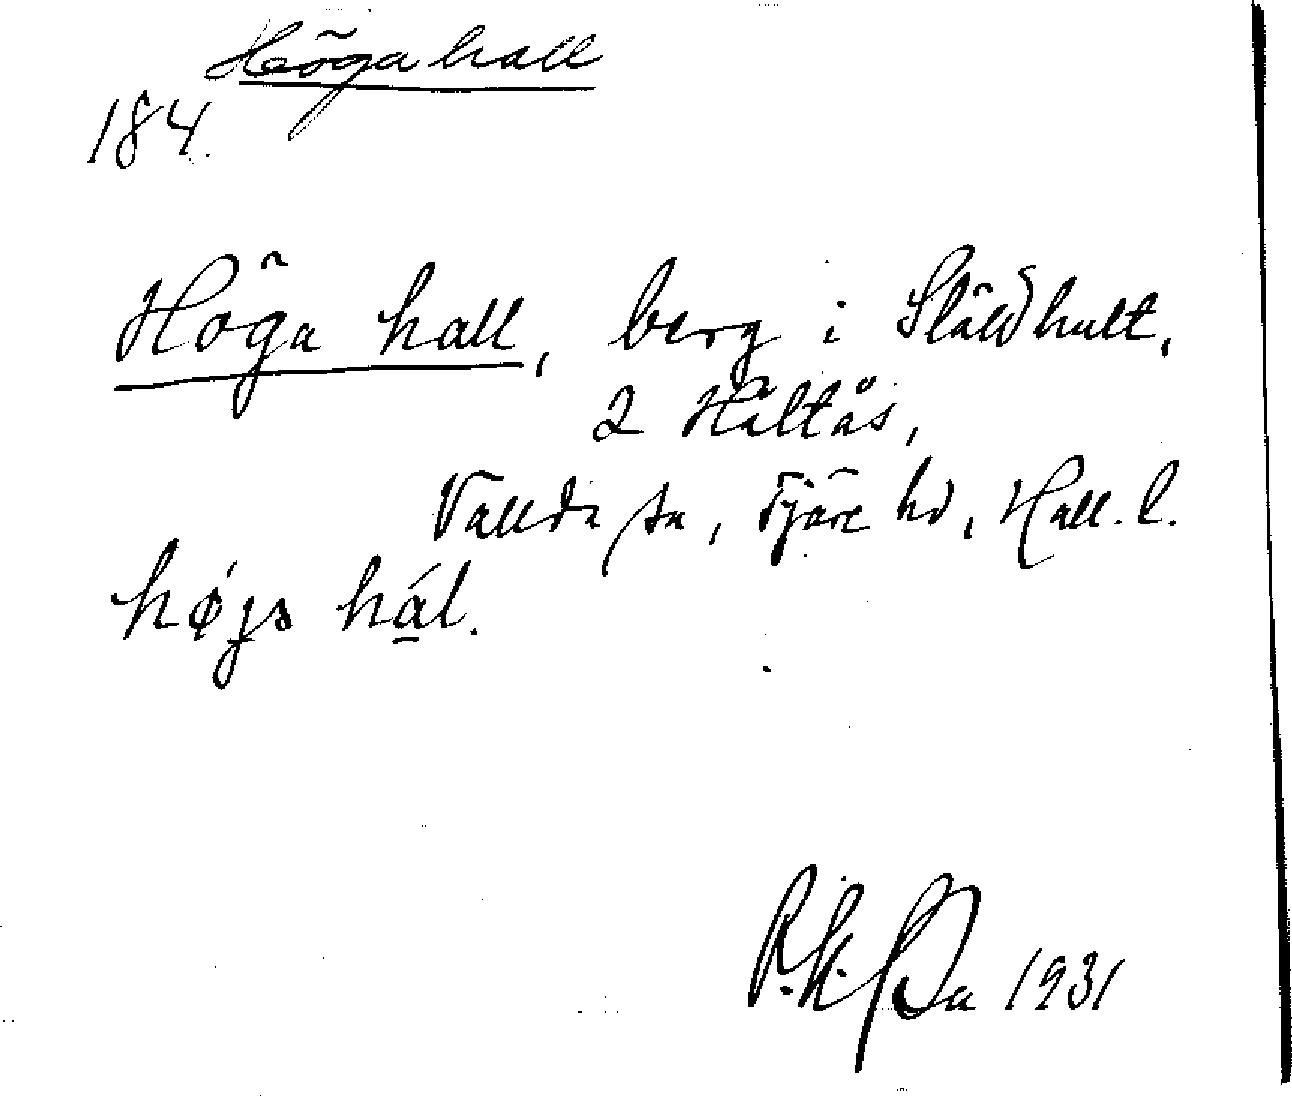 Höga hall
184.
Höga hall, berg i Slädhult,
2 Hältås,
Vallda sn, Fjäre hd, Hall. l.
højs hál.
1931